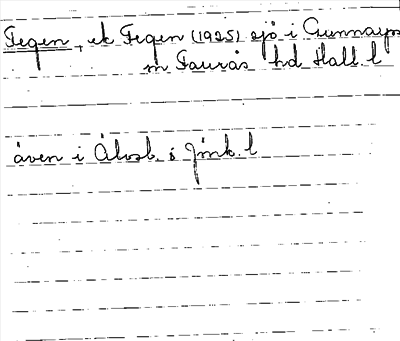 Fegen, ek Fegen (1925) sjö i Gunnarps
sn Faurås hd Hall. l
även i Älvsb. o Jönk. l